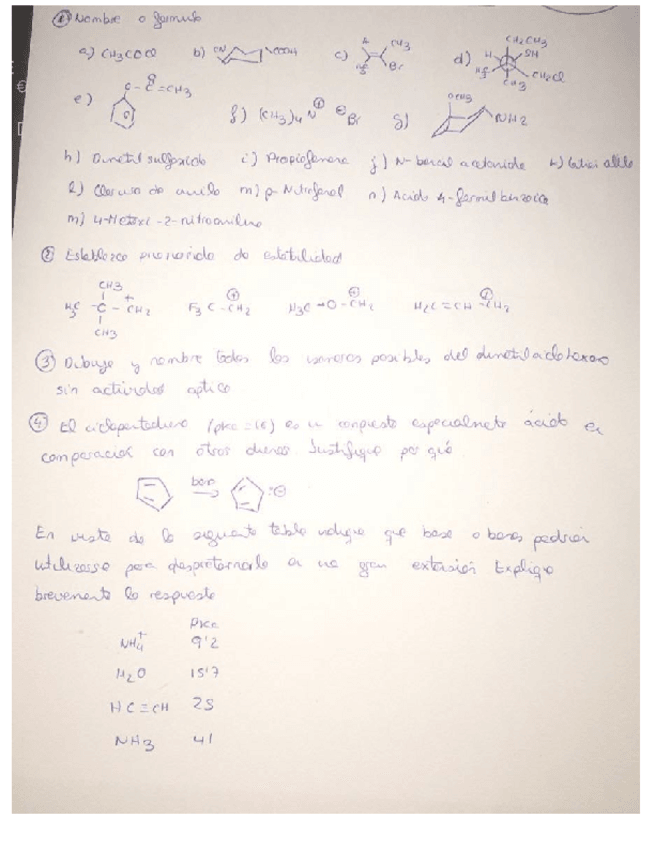 ① Nombre o formula
a) CH3COCl b) CN COOH c) H CH3 H3C Br d) CH2CH3 H SH H3C CH2Cl CH3
e) C - C = CH3 f) (CH3)4 N ⊕ ⊖ Br g) OCH3 NH2
h) Dimetil sulfoxido i) Propiofenona j) N-bencil acetamida k)
l) Cloruro de m) p-Nitrofenol n) Acido 4-formil benzoico
m) 4-Metoxi-2-nitroanilina
② Establezca de estabilidad
CH3
H3C - C - CH2 + F3C - CH2 ⊕ H3C - O - CH2 ⊕ H2C = CH - CH2 ⊕
CH3
③ Dibuje y nombre todos los isomeros posibles del
sin actividad optica
④ El ciclopentadieno (pka = 16) es un compuesto especialmente ácido en
comparación con otros dienos. Justifique por qué
base :⊖
En vista de la siguiente tabla indique que base o bases podrian
utilizarse para desprotonarlo en una gran extensión Explique
brevemente la respuesta
pka
NH4+ 9'2
H2O 15'7
HC≡CH 25
NH3 41